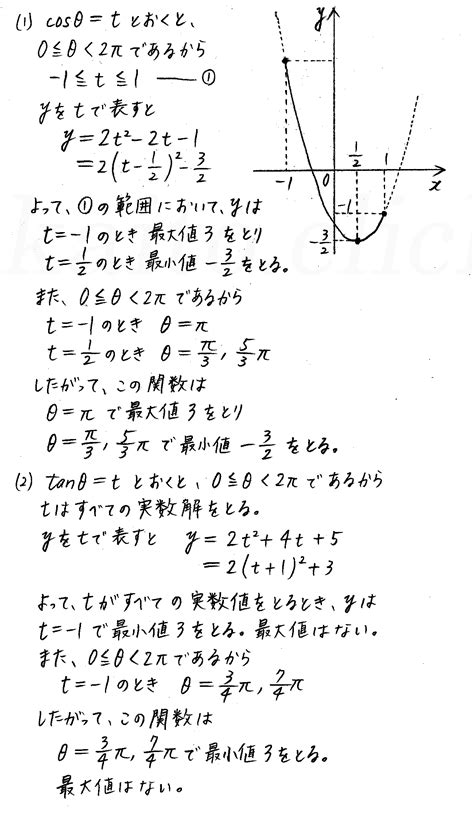 (1) cosθ = t とおくと、
0 ≦ θ < 2π であるから
-1 ≦ t ≦ 1 —— ①
yをtで表すと
y = 2t² - 2t - 1
= 2(t - 1/2)² - 3/2
y
-1 0 1/2 1 x
-1
-3/2
よって、①の範囲において、yは
t = -1のとき 最大値3をとり
t = 1/2のとき 最小値 -3/2をとる。
また、0 ≦ θ < 2π であるから
t = -1のとき θ = π
t = 1/2のとき θ = π/3, 5/3π
したがって、この関数は
θ = π で最大値3をとり
θ = π/3, 5/3π で最小値 -3/2 をとる。
(2) tanθ = t とおくと、0 ≦ θ < 2π であるから
tはすべての実数解をとる。
yをtで表すと y = 2t² + 4t + 5
= 2(t + 1)² + 3
よって、tがすべての実数値をとるとき、yは
t = -1で最小値3をとる。最大値はない。
また、0 ≦ θ < 2π であるから
t = -1のとき θ = 3/4π, 7/4π
したがって、この関数は
θ = 3/4π, 7/4π で最小値3をとる。
最大値はない。